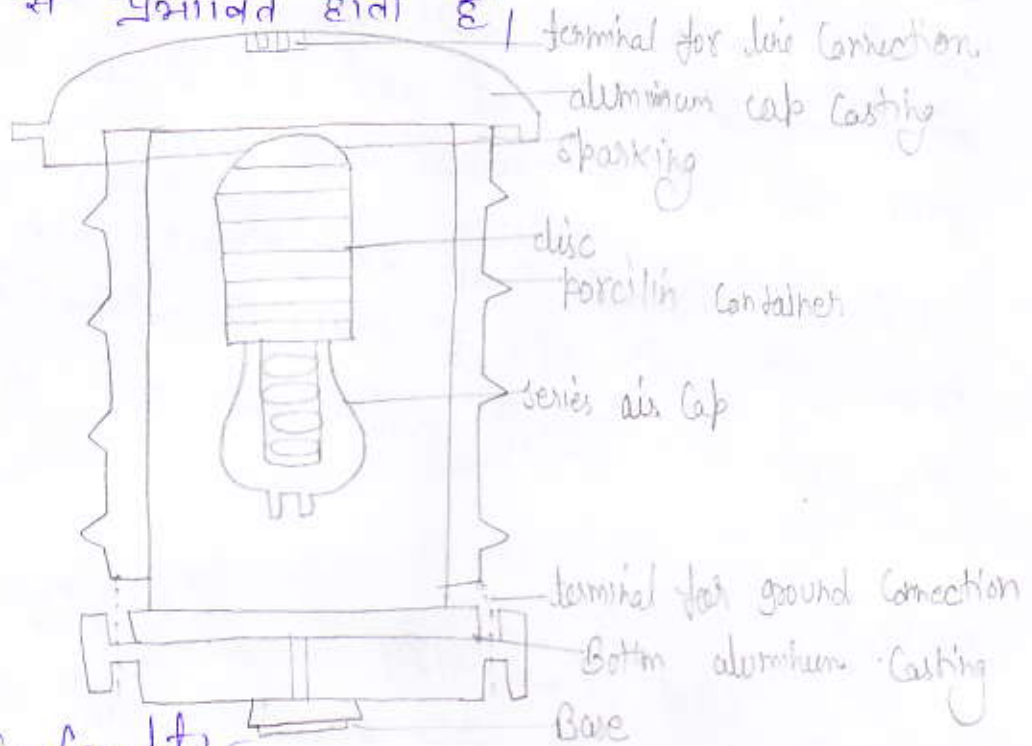 से प्रभावित होता है।
terminal for line Connection
aluminum cap Casting
Sparking
disc
porcilin Container
series air Cap
terminal for ground Connection
Bottm aluminum Casting
Base